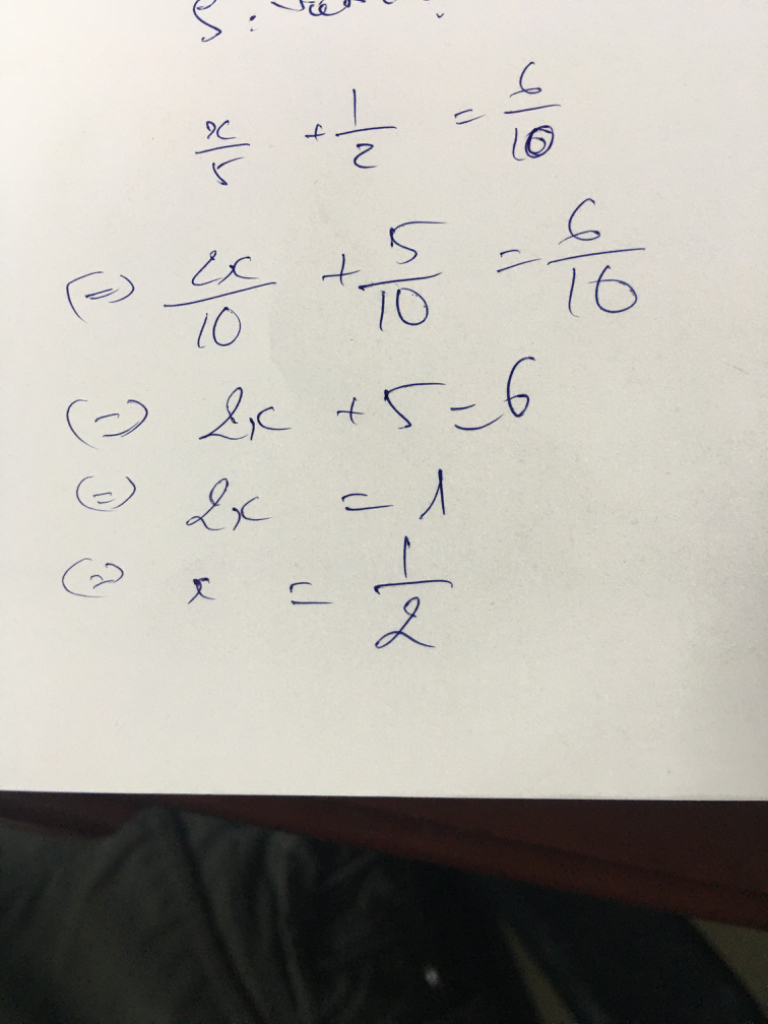 5:
x/5 + 1/2 = 6/10
(=) 2x/10 + 5/10 = 6/10
(=) 2x + 5 = 6
(=) 2x = 1
(=) x = 1/2